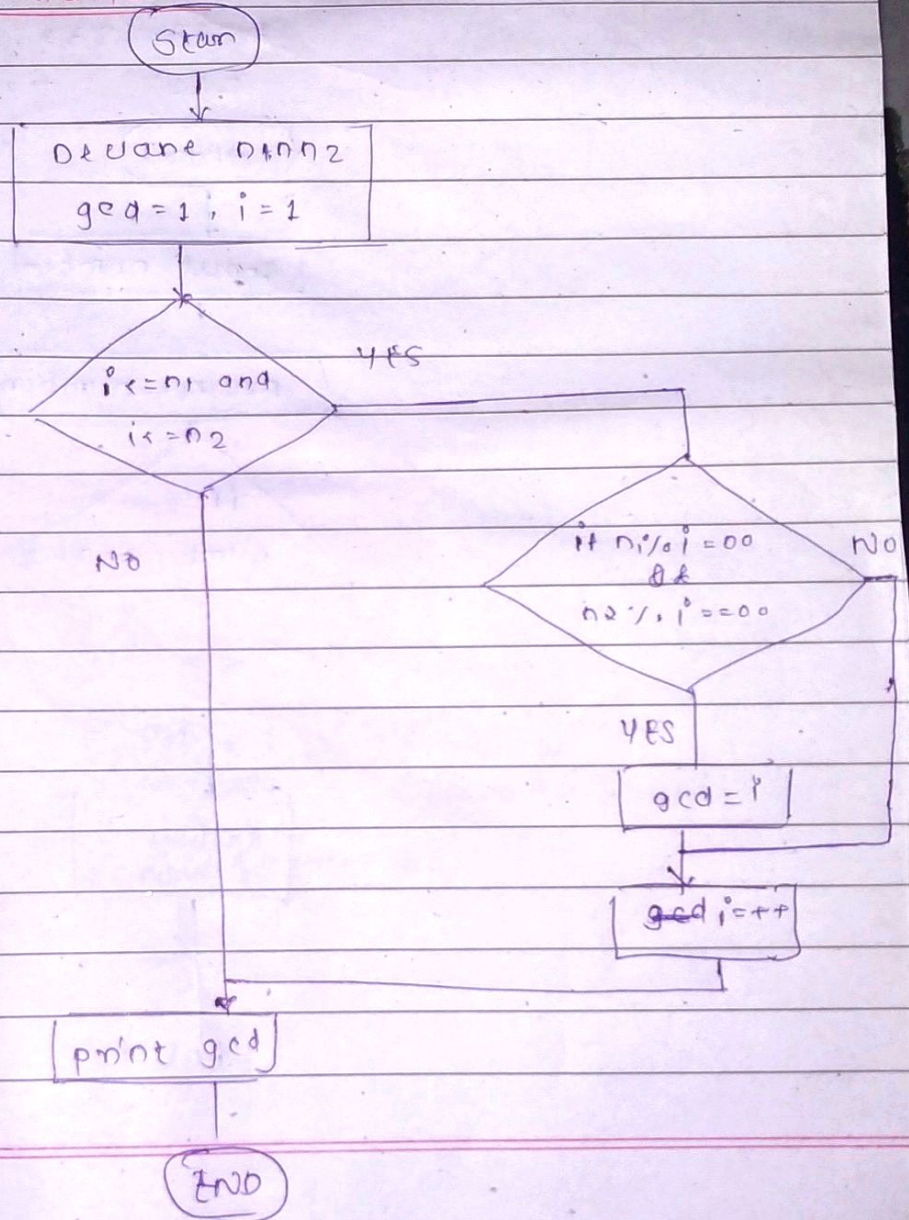 Start
Declare n1, n2
gcd = 1, i = 1
i <= n1 and
i <= n2
YES
NO
if n1 % i = 00
&&
n2 % i == 00
NO
YES
gcd = i
i=++
print gcd
END